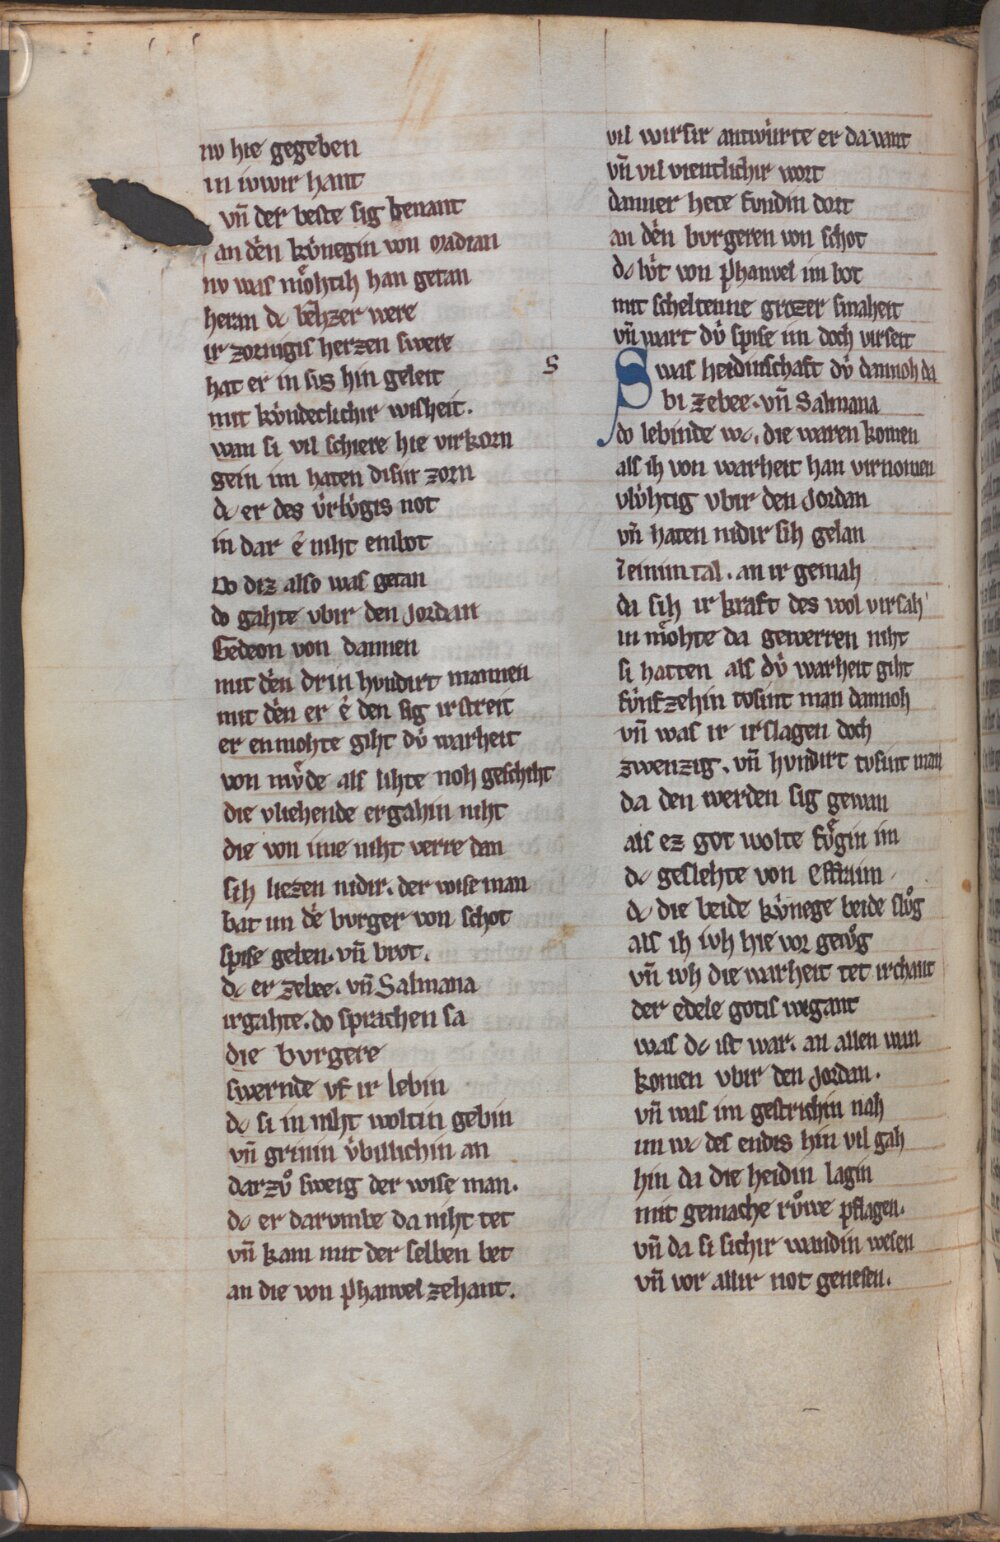 nv hie gegeben
in iwir hant
vn̄ der beste sig benant
an dēn kv́negin von madian
nv was mo᷑htih han getan
herm dc bēhzer were
ir zornigis herzen swere
hat er in svs hin geleit
mit kv́ndeclichir wisheit.
wan si vil schiere hie virkorn
gein im haten disin zorn
dc er des v́rlv́gis not
in dar ê niht enbot
Do diz also was getan
do gahte vbir den Jordan
Gedeon von dannen
mit dēn drin hvndirt mannen
mit dēn er ê den sig irstreit
er enmohte giht dv́ warheit
von mv́de als lihte noh geschiht
die vliehende ergahin niht
die von ime niht verre dan
sih liezen nidir. der wise man
bat im dē bvrger von schot
spise geben. vn̄ brot.
dc er zebee. vn̄ Salmana
irgahte. do sprachen sa
die bvrgere
swernde vf ir lebin
dc si in niht woltin gebin
vn̄ grinin v́billichin an
darzvͦ sweig der wise man.
dc er darvmbe da niht tet
vn̄ kam mit der selben bet
an die von phanvel zehant.
vil wirsir antwv́rte er da vant
vn̄ vil vientlichir wort
danner hete fvndin dort
an dēn bvrgeren von schot
dc lv́t von phanvel im bot
mit scheltenne grozer smaheit
vn̄ wart dv́ spise im doch virseit
s
Swas heidinschaft dv́ dannoh da
bi zebee. vn̄ Salmana
do lebinde wc. die waren komen
als ih von warheit han virnomen
vlv́htig vbir den Jordan
vn̄ haten nidir sih gelan
zeinin tal. an ir gemah
da sih ir kraft des wol virsah
in mo᷑hte da gewerren niht
si hatten als dv́ warheit giht
fv́nfzehin tvsint man dannoh
vn̄ was ir irslagen doch
zwenzig. vn̄ hvndirt tvsint man
da den werden sig gewan
als ez got wolte fv́gin im
dc geslehte von Effraim
dc die beide kv́nege beide slvͦg
als ih ivh hie vor gewͦg
vn̄ ivh die warheit tet irchant
der edele gotis wigant
was dc ist war. an allen wan
komen vbir den Jordan.
vn̄ was im gestrichin nah
im wc des endis hin vil gah
hin da die heidin lagin
mit gemache rvͦwe pflagen.
vn̄ da si sichir wandin wesen
vn̄ vor allir not genesen.